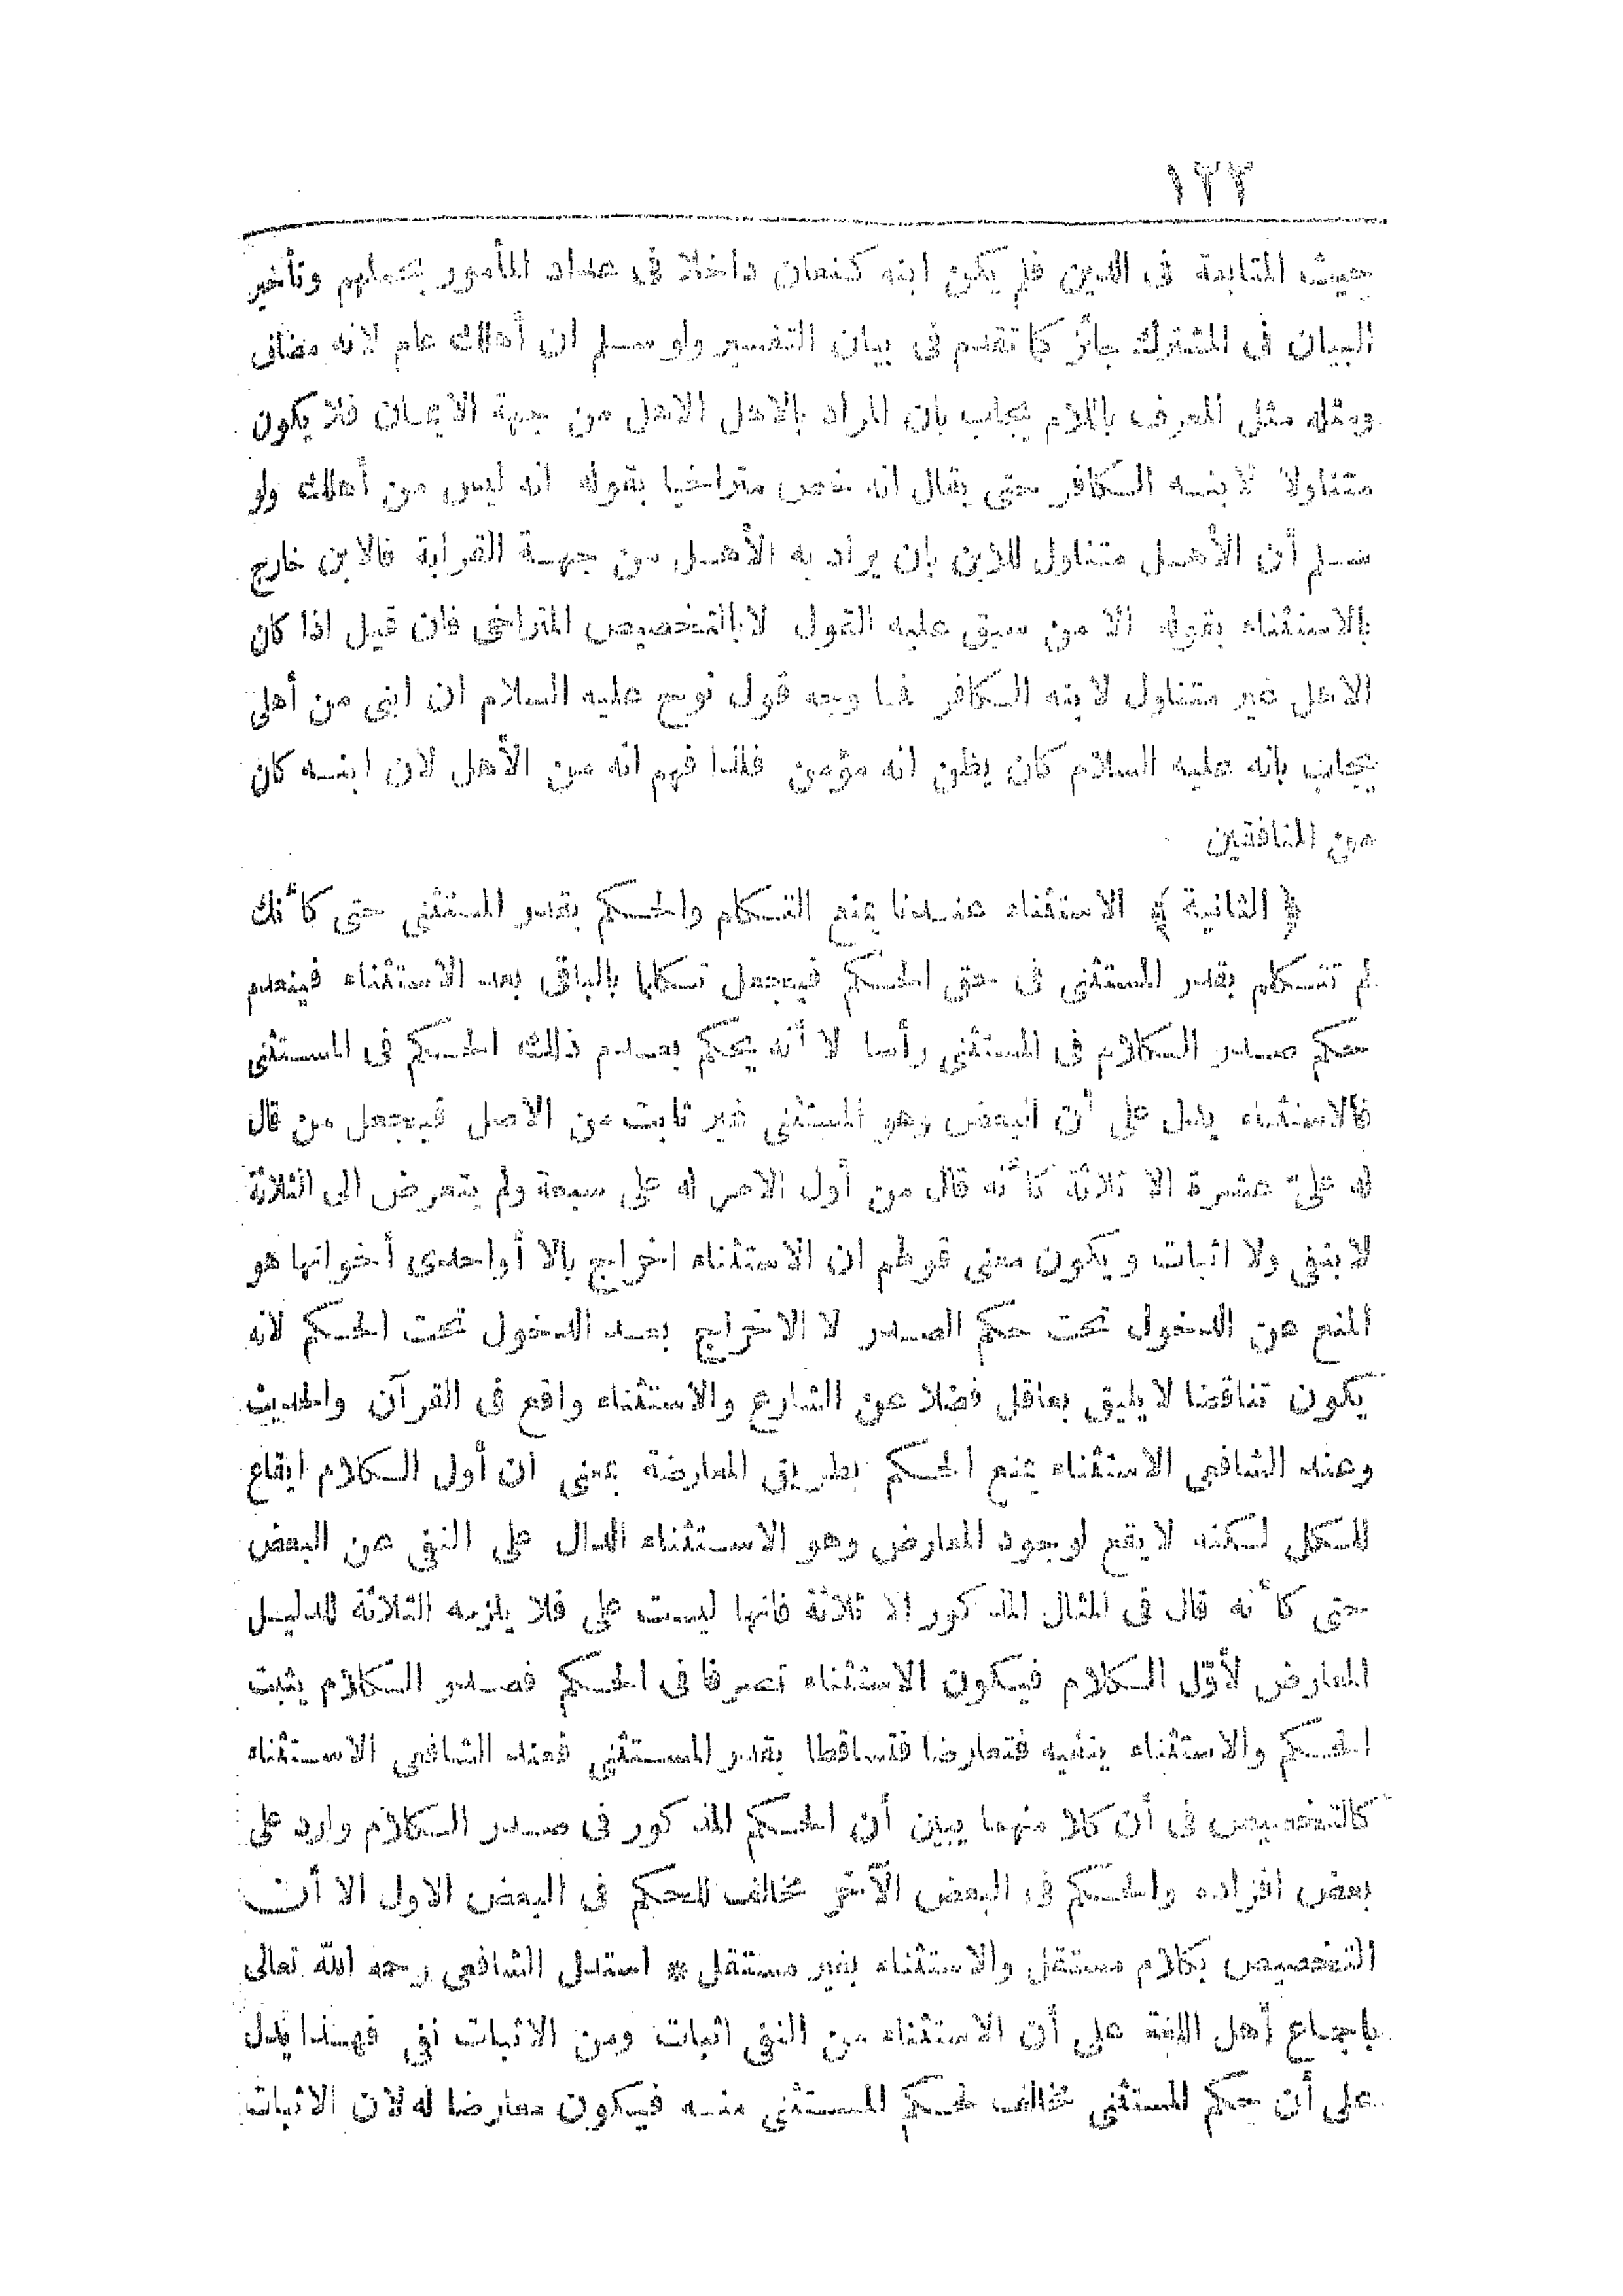 ١٢٣
حيث المتابعة فى الدين فلم يكن ابنه كنعان داخلا فى عداد المأمور بحملهم وتأخير
البيان فى المشترك جائز كما تقدم فى بيان التفسير ولو سلم ان أهلك عام لانه مضاف
ومثله مثل المعرف باللام يجاب بان المراد بالاهل الاهل من جهة الايمان فلا يكون
متناولا لابنه الكافر حتى يقال انه خص متراخيا بقوله انه ليس من أهلك ولو
سلم أن الأهل متناول للابن بان يراد به الأهل من جهة القرابة فالابن خارج
بالاستثناء بقوله الا من سبق عليه القول لا بالتخصيص المتراخى فان قيل اذا كان
الاهل غير متناول لابنه الكافر فما وجه قول نوح عليه السلام ان ابنى من أهلى
يجاب بانه عليه السلام كان يظن انه مؤمن فلذا فهم انه من الأهل لان ابنه كان
من المنافقين
﴿ الثانية ﴾ الاستثناء عندنا يمنع التكلم والحكم بقدر المستثنى حتى كأنك
لم تتكلم بقدر المستثنى فى حق الحكم فيجعل تكلما بالباقى بعد الاستثناء فينعدم
حكم صدر الكلام فى المستثنى رأسا لا أنه يحكم بعدم ذلك الحكم فى المستثنى
فالاستثناء يدل على أن البعض وهو المستثنى غير ثابت من الاصل فيجعل من قال
له علىّ عشرة الا ثلاثة كأنه قال من أول الامر له على سبعة ولم يتعرض الى الثلاثة
لا بنفى ولا اثبات ويكون معنى قولهم ان الاستثناء اخراج بالا أو احدى أخواتها هو
المنع عن الدخول تحت حكم الصدر لا الاخراج بعد الدخول تحت الحكم لانه
يكون تناقضا لا يليق بعاقل فضلا عن الشارع والاستثناء واقع فى القرآن والحديث
وعند الشافعى الاستثناء يمنع الحكم بطريق المعارضة بمعنى ان أول الكلام ايقاع
للكل لكنه لا يقع لوجود المعارض وهو الاستثناء الدال على النفى عن البعض
حتى كأنه قال فى المثال المذكور الا ثلاثة فانها ليست على فلا يلزمه الثلاثة للدليل
المعارض لأوّل الكلام فيكون الاستثناء تصرفا فى الحكم فصدر الكلام يثبت
الحكم والاستثناء ينفيه فتعارضا فتساقطا بقدر المستثنى فعند الشافعى الاستثناء
كالتخصيص فى أن كلا منهما يبين أن الحكم المذكور فى صدر الكلام وارد على
بعض افراده والحكم فى البعض الآخر مخالف للحكم فى البعض الاول الا أن
التخصيص بكلام مستقل والاستثناء بغير مستقل * استدل الشافعى رحمه اللّه تعالى
باجماع أهل اللغة على أن الاستثناء من النفى اثبات ومن الاثبات نفى فهذا يدل
على أن حكم المستثنى مخالف لحكم المستثنى منه فيكون معارضا له لان الاثبات